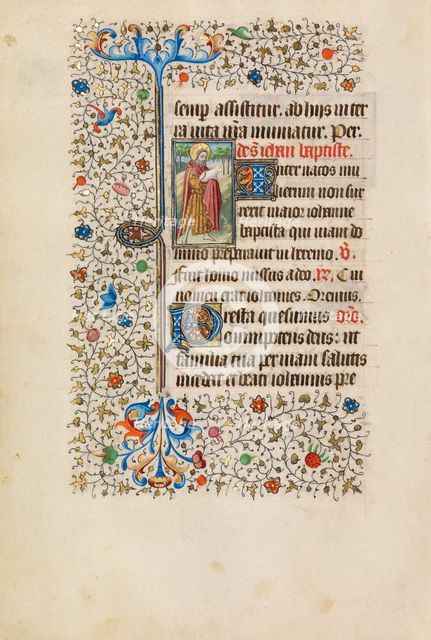 semp assistitur. ab hijs in ter
ra vita nra muniatur. Per.
de s iohan baptiste.
Inter natos mu
lierum non sur
rexit maior iohanne
baptista qui viam do
mino preparavit in heremo. V
fuit homo missus a deo. R. Cui
nomen erat iohannes. Oremus.
Presta quesumus oro.
omnipotens deus: ut
familia tua per viam salutis
incedat et beati iohannis pre